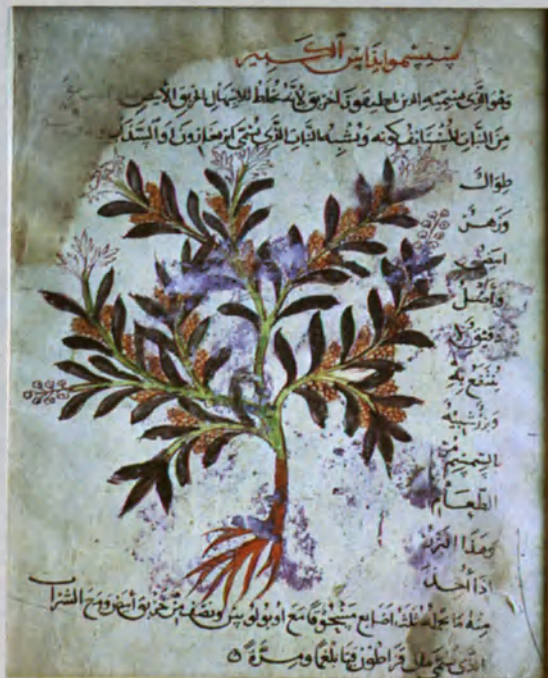 سيسمويداس الكبير
وهو الذى يسميه الذين انطيقون اخربق لانه يخلط للاسهال الخربق الابيض
من النبات المستانف كونه ويشبه النبات الذى يسمى او السذاب
طوال
وزهر
ابيض
واصل
دقيق
ينتفع به
وبزر شبيه
بالسمسم مر
الطعام
وهذا البزر
اذا أخذ
منه ما يحمله ثلث اصابع مسحوقا مع اوبولو بيس ونصف من خربق أبيض ومع الشراب
الذى يسمى مالى قراطون قيا بلغما ومرة